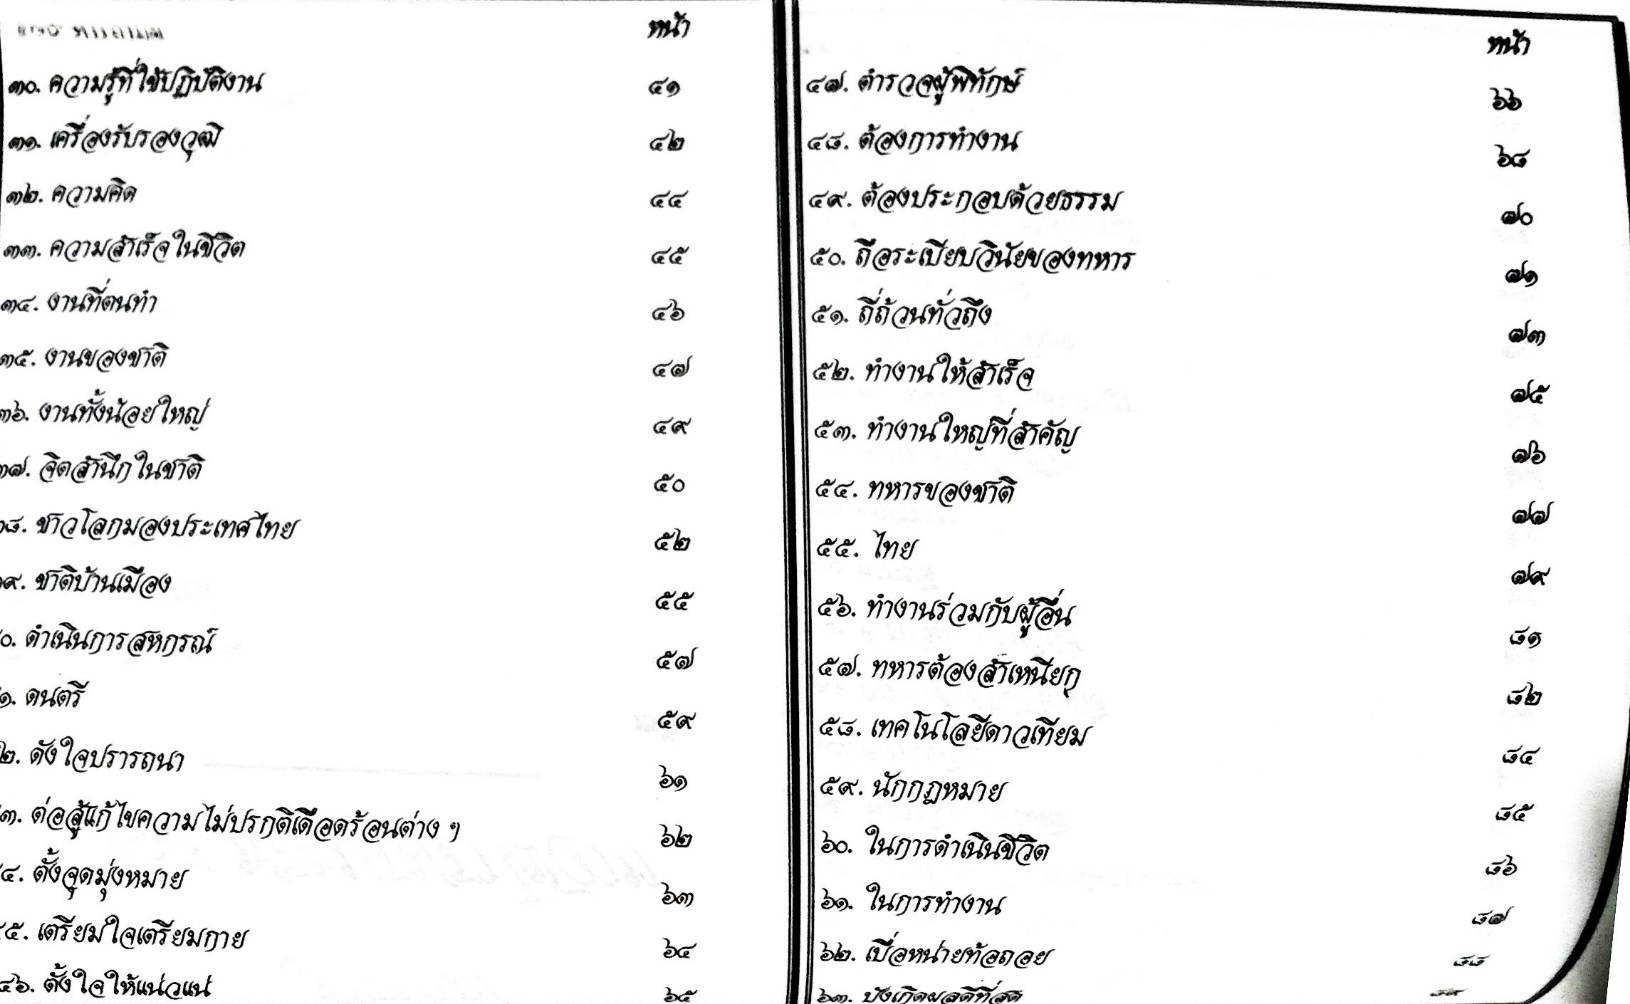 หน้า
๓๐. ความรู้ที่ใช้ปฏิบัติงาน ๔๑
๓๑. เครื่องรับรองวุฒิ ๔๒
๓๒. ความคิด ๔๔
๓๓. ความสำเร็จในชีวิต ๔๕
๓๔. งานที่ตนทำ ๔๖
๓๕. งานของชาติ ๔๗
๓๖. งานทั้งน้อยใหญ่ ๔๙
๓๗. จิตสำนึกในชาติ ๕๐
๘. ชาวโลกมองประเทศไทย ๕๒
๙. ชาติบ้านเมือง ๕๕
๐. ดำเนินการสหกรณ์ ๕๗
๑. ดนตรี ๕๙
๒. ดังใจปรารถนา ๖๑
๓. ต่อสู้แก้ไขความไม่ปรกติเดือดร้อนต่าง ๆ ๖๒
๔. ตั้งจุดมุ่งหมาย ๖๓
๕. เตรียมใจเตรียมกาย ๖๔
๔๖. ตั้งใจให้แน่วแน่ ๖๕
หน้า
๔๗. ตำรวจผู้พิทักษ์ ๖๖
๔๘. ต้องการทำงาน ๖๘
๔๙. ต้องประกอบด้วยธรรม ๗๐
๕๐. ถือระเบียบวินัยของทหาร ๗๑
๕๑. ถี่ถ้วนทั่วถึง ๗๓
๕๒. ทำงานให้สำเร็จ ๗๕
๕๓. ทำงานใหญ่ที่สำคัญ ๗๖
๕๔. ทหารของชาติ ๗๗
๕๕. ไทย ๗๙
๕๖. ทำงานร่วมกับผู้อื่น ๘๑
๕๗. ทหารต้องสำเหนียก ๘๒
๕๘. เทคโนโลยีดาวเทียม ๘๔
๕๙. นักกฎหมาย ๘๕
๖๐. ในการดำเนินชีวิต ๘๖
๖๑. ในการทำงาน ๘๗
๖๒. เบื่อหน่ายท้อถอย ๘๘
๖๓. บังเกิดผลดีที่สุด